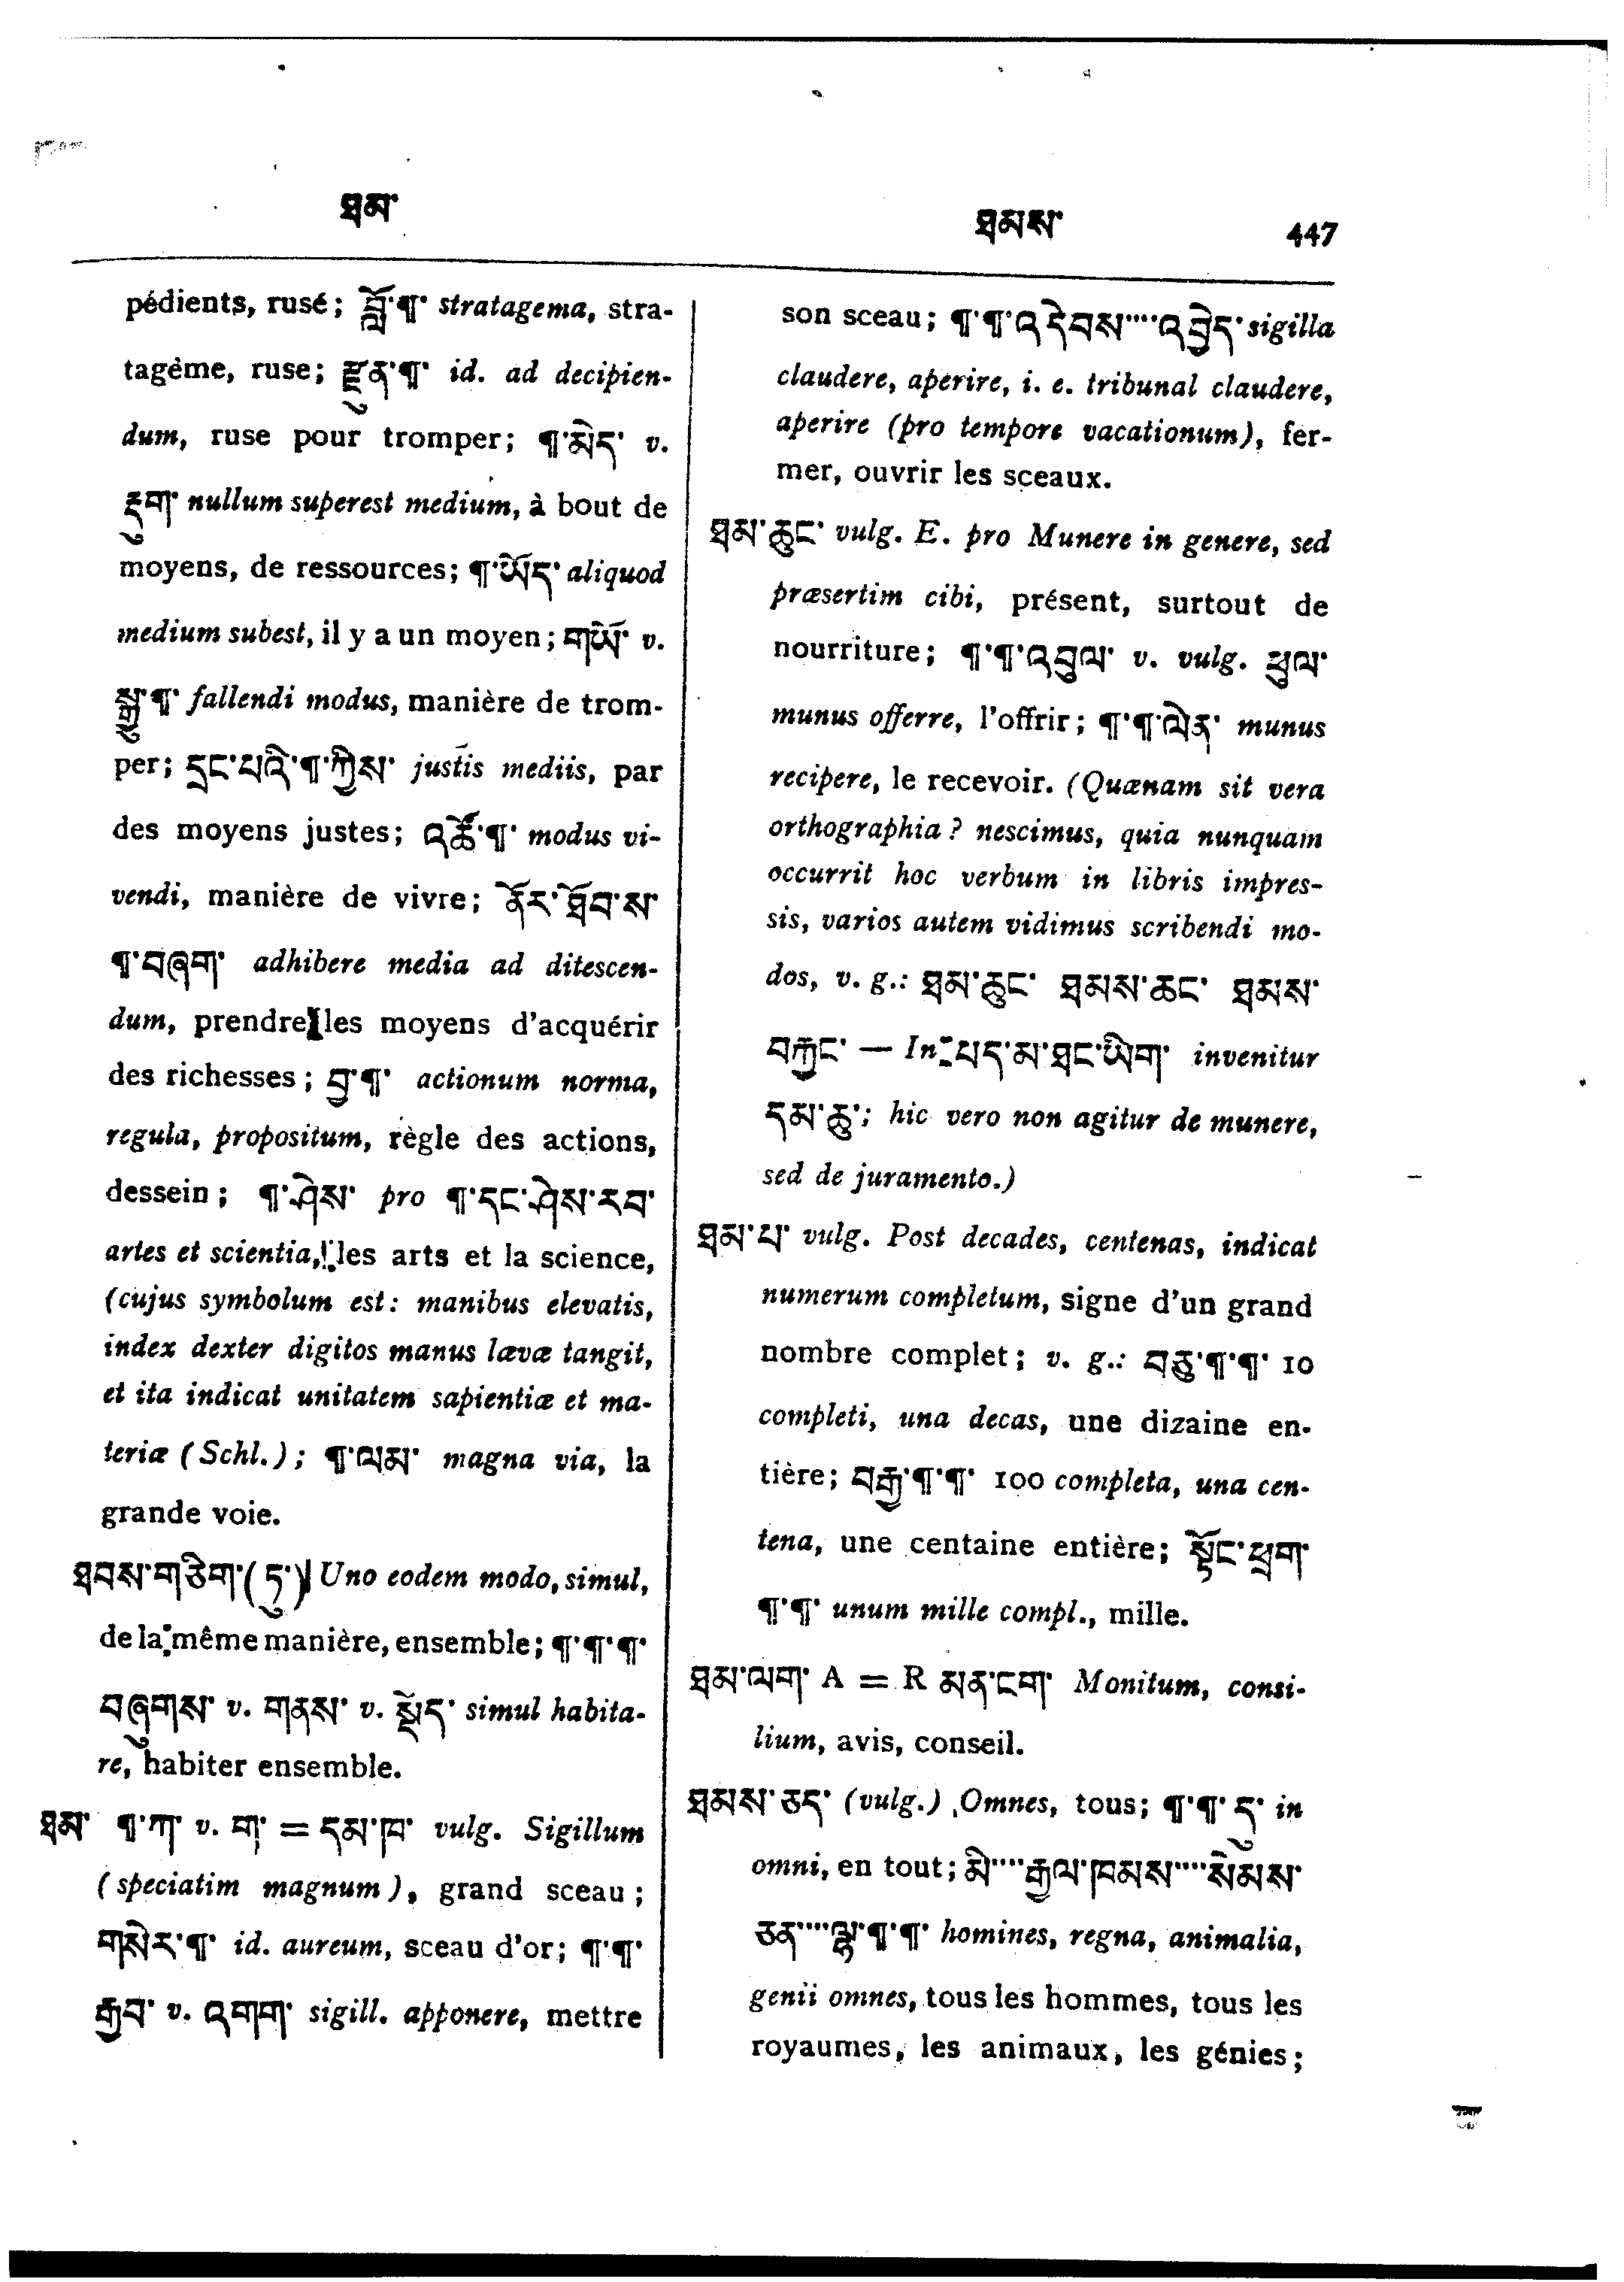 ཐམ་
ཐམས་ 447
pédients, rusé; བློ་¶་ stratagema, stra-
tagème, ruse; རྫུན་¶་ id. ad decipien-
dum, ruse pour tromper; ¶་མེད་ v.
རྡུག་ nullum superest medium, à bout de
moyens, de ressources; ¶་ཡོད་ aliquod
medium subest, il y a un moyen; གཡོ་ v.
སྒྱུ་¶་ fallendi modus, manière de trom-
per; དྲང་པའི་¶་ཀྱིས་ justis mediis, par
des moyens justes; འཚོ་¶་ modus vi-
vendi, manière de vivre; ནོར་ཐོབ་ས་
¶་བཞག་ adhibere media ad ditescen-
dum, prendre les moyens d'acquérir
des richesses; བྱ་¶་ actionum norma,
regula, propositum, règle des actions,
dessein; ¶་ཤེས་ pro ¶་དང་ཤེས་རབ་
artes et scientia, les arts et la science,
(cujus symbolum est: manibus elevatis,
index dexter digitos manus lævæ tangit,
et ita indicat unitatem sapientiæ et ma-
teriæ (Schl.); ¶་ལམ་ magna via, la
grande voie.
ཐབས་གཅིག་(ཏུ་) Uno eodem modo, simul,
de la même manière, ensemble; ¶་¶་¶་
བཞུགས་ v. གནས་ v. སྡོད་ simul habita-
re, habiter ensemble.
ཐམ་ ¶་ཀ་ v. ག་ = དམ་ཁ་ vulg. Sigillum
(speciatim magnum), grand sceau;
གསེར་¶་ id. aureum, sceau d'or; ¶་¶་
རྒྱབ་ v. འགག་ sigill. apponere, mettre
son sceau; ¶་¶་འདེབས་····འབྱེད་ sigilla
claudere, aperire, i. e. tribunal claudere,
aperire (pro tempore vacationum), fer-
mer, ouvrir les sceaux.
ཐམ་ཆུང་ vulg. E. pro Munere in genere, sed
præsertim cibi, présent, surtout de
nourriture; ¶་¶་འབུལ་ v. vulg. ཕུལ་
munus offerre, l'offrir; ¶་¶་ལེན་ munus
recipere, le recevoir. (Quænam sit vera
orthographia? nescimus, quia nunquam
occurrit hoc verbum in libris impres-
sis, varios autem vidimus scribendi mo-
dos, v. g.: ཐམ་ཆུང་ ཐམས་ཆང་ ཐམས་
བརྐྱང་ — In པད་མ་ཐང་ཡིག་ invenitur
དམ་ཆུ་; hic vero non agitur de munere,
sed de juramento.)
ཐམ་པ་ vulg. Post decades, centenas, indicat
numerum completum, signe d'un grand
nombre complet; v. g.: བཅུ་¶་¶་ 10
completi, una decas, une dizaine en-
tière; བརྒྱ་¶་¶་ 100 completa, una cen-
tena, une centaine entière; སྟོང་ཕྲག་
¶་¶་ unum mille compl., mille.
ཐམ་ལག་ A = R མན་ངག་ Monitum, consi-
lium, avis, conseil.
ཐམས་ཅད་ (vulg.) Omnes, tous; ¶་¶་དུ་ in
omni, en tout; མི་····རྒྱལ་ཁམས་····སེམས་
ཅན་····ལྷ་¶་¶་ homines, regna, animalia,
genii omnes, tous les hommes, tous les
royaumes, les animaux, les génies;